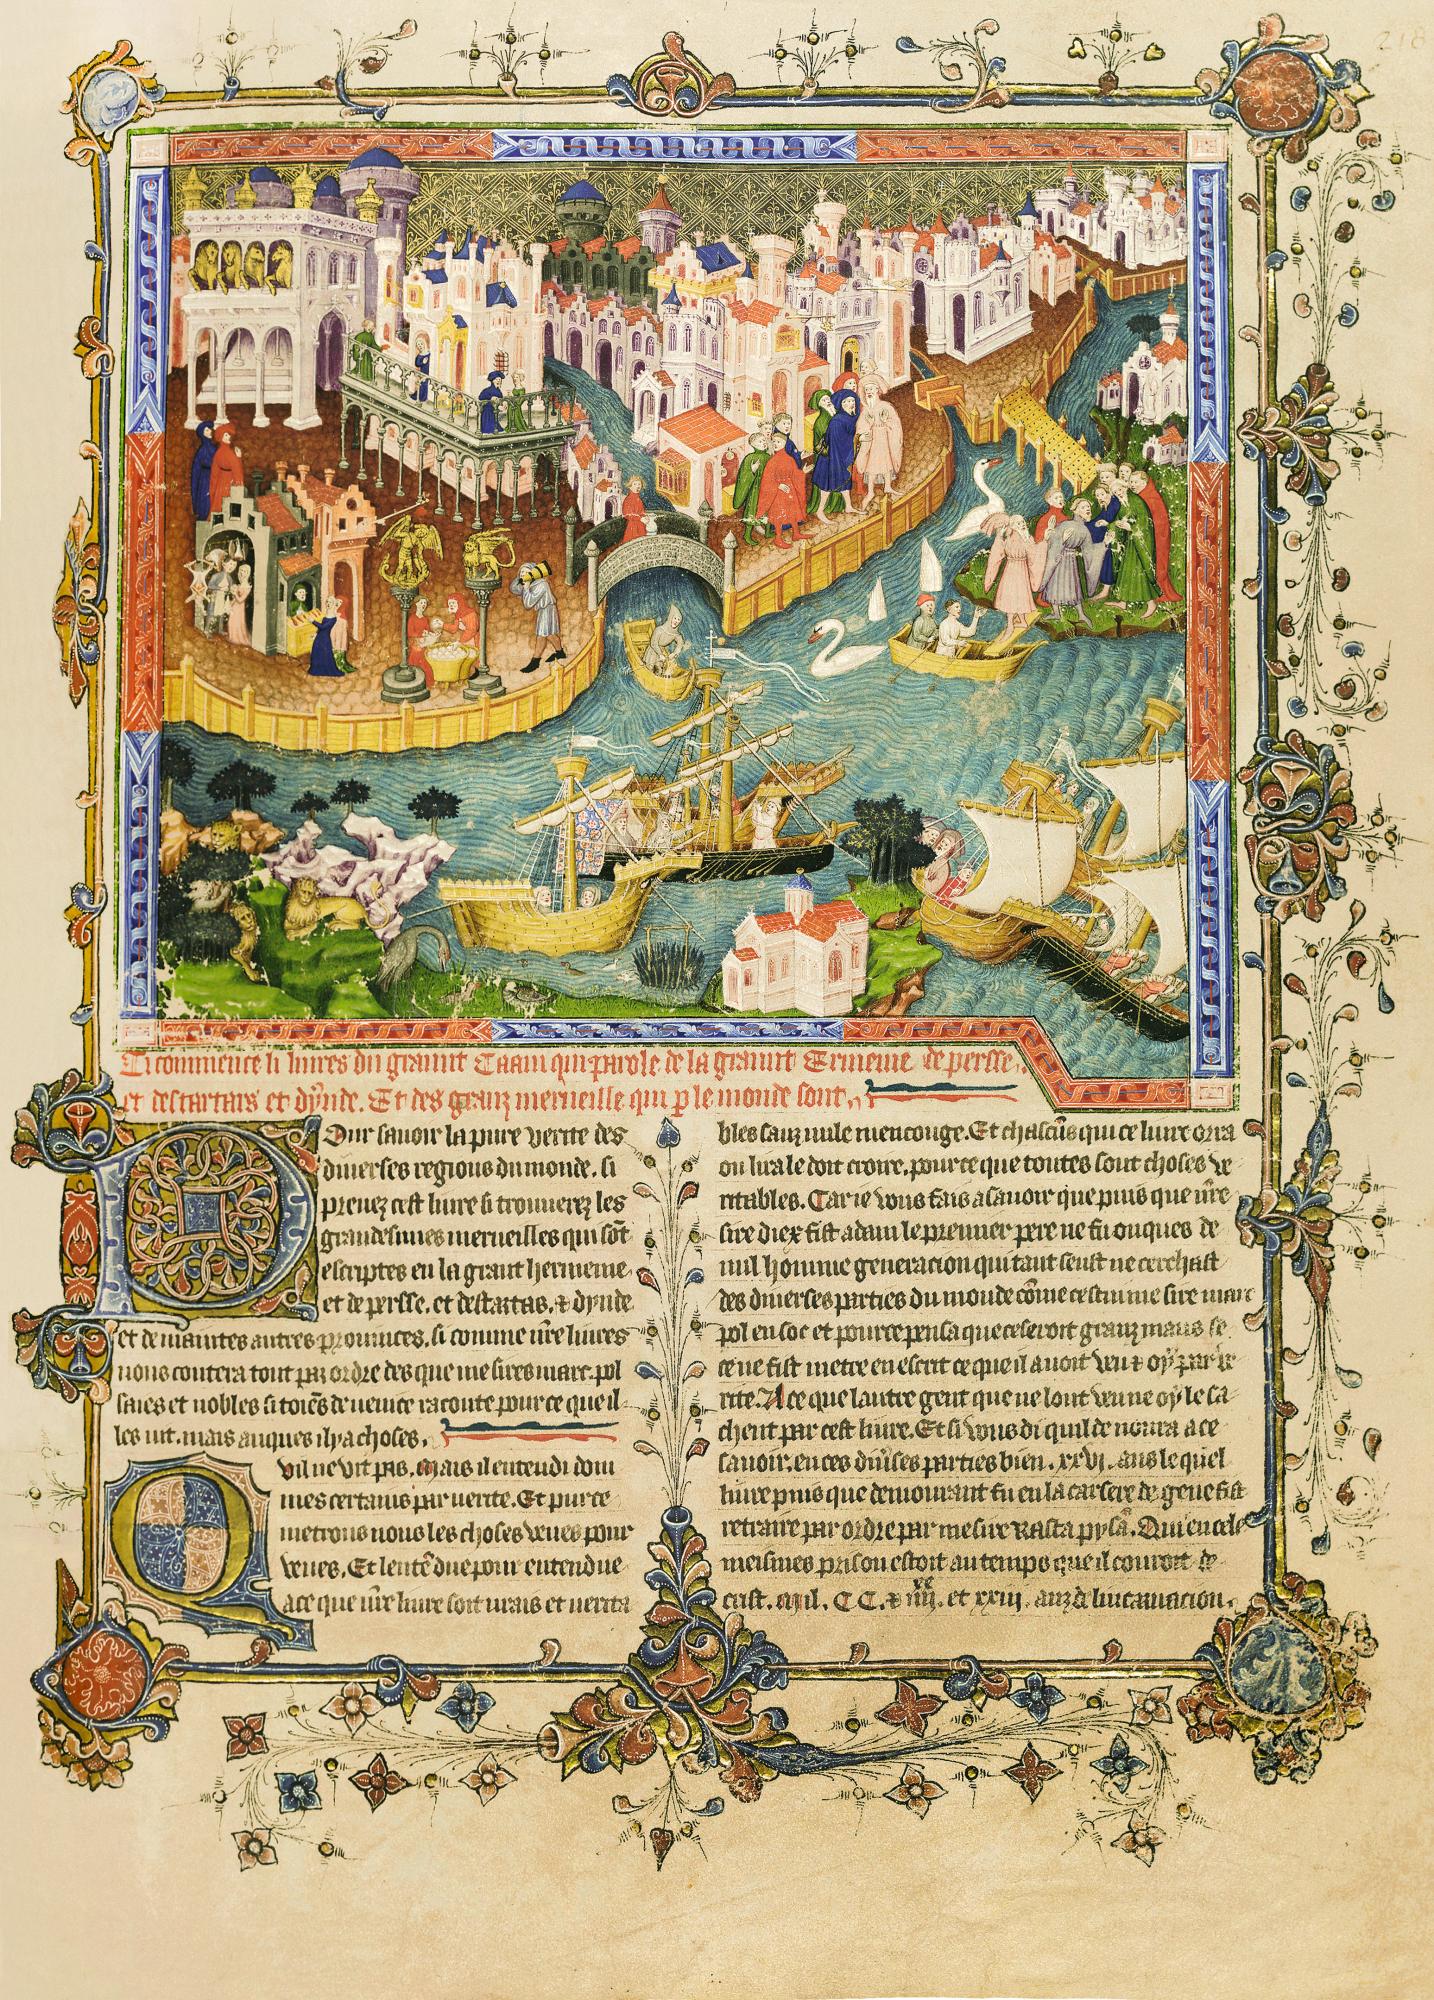 218
Ci commence li liures du graunt Caam qui parole de la graunt Ermenie de persse,
et des tartars et dynde. Et des granz merueille qui p le monde sont,
Pour sauoir la pure verite des
diuerses regions du monde. si
prenez cest liure si trouuerez les
grandesmes merueilles qui sōt
escriptes en la grant hermenie
et de persse. et des tartas. & dynde
et de maintes autres prouinces. si comme nr̄e liures
nous contera tout par ordre des que mesires marc. pol
saies et nobles sitoiēs de venice raconte pour ce que il
les uit. mais auques il y a choses,
Qvil ne vit pas. Mais il entendi dom
mes certains par uerite. Et pur ce
metrons nous les choses veues pour
veues. Et lentēdue pour entendue
a ce que nr̄e liure soit urais et uerita
bles sanz nule mencouge. Et chascūs qui ce liure orra
ou lira le doit croire. pour ce que toutes sont choses ve
ritables. Car ie vous fais a sauoir que puis que nr̄e
sire diex fist adam le premier pere ne fu onques de
nul homme generacion qui tant seust ne cerchast
des diuerses parties du monde cōme cestui me sire marc
pol en soc et pour ce pensa que ce seroit granz maus se
ce ne fist metre en escrit ce que il auoit veu & oy par ve
rite. A ce que lautre gent que ne lont veu ne oy le sa
chent par cest liure. Et si vous di quil demoura a ce
sauoir. en ces diūses parties bien. xxvi. ans le quel
liure puis que demourant fu en la carsere de gene fist
retraire par ordre par mesire Rasta pysā. Qui en cele
meismes prison estoit au temps que il couroit de
crist. Mil. CC. & iiii. et xviii. anz de lincarnacion.